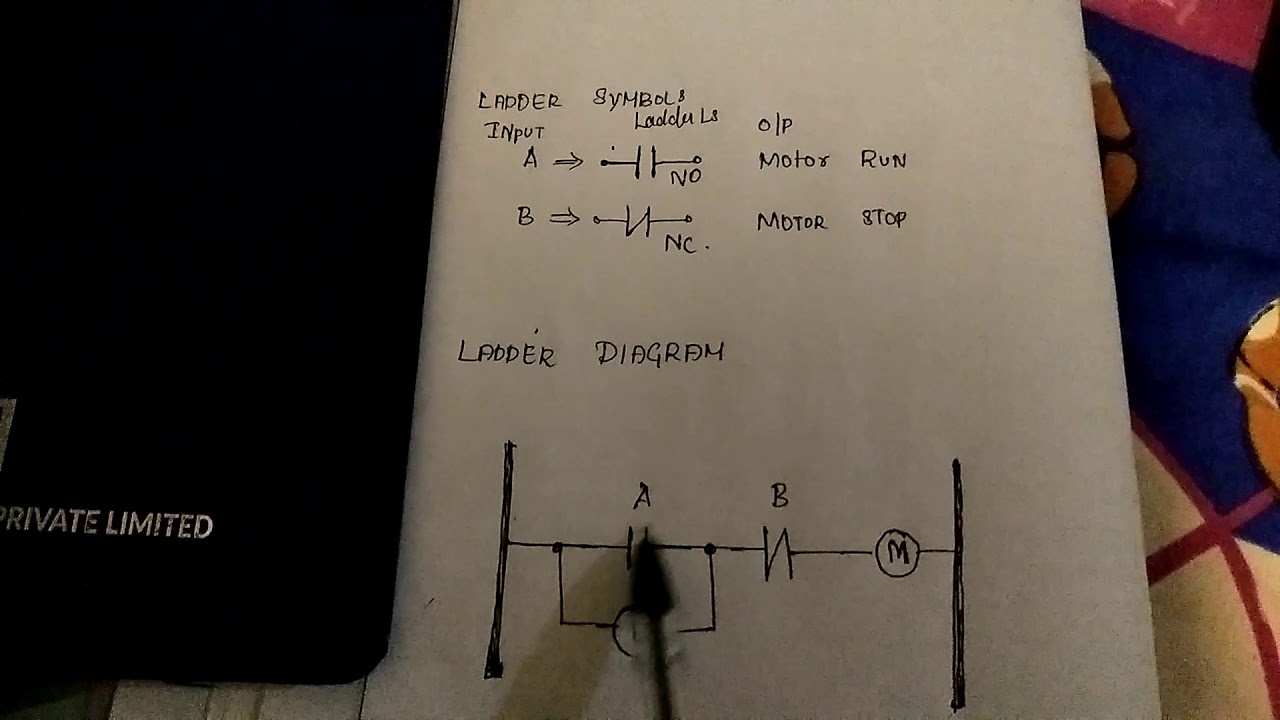 LADDER SYMBOLS
INPUT Ladder Ls O/P
A ⇒ NO Motor RUN
B ⇒ NC. MOTOR STOP
LADDER DIAGRAM
A B
M
PRIVATE LIMITED